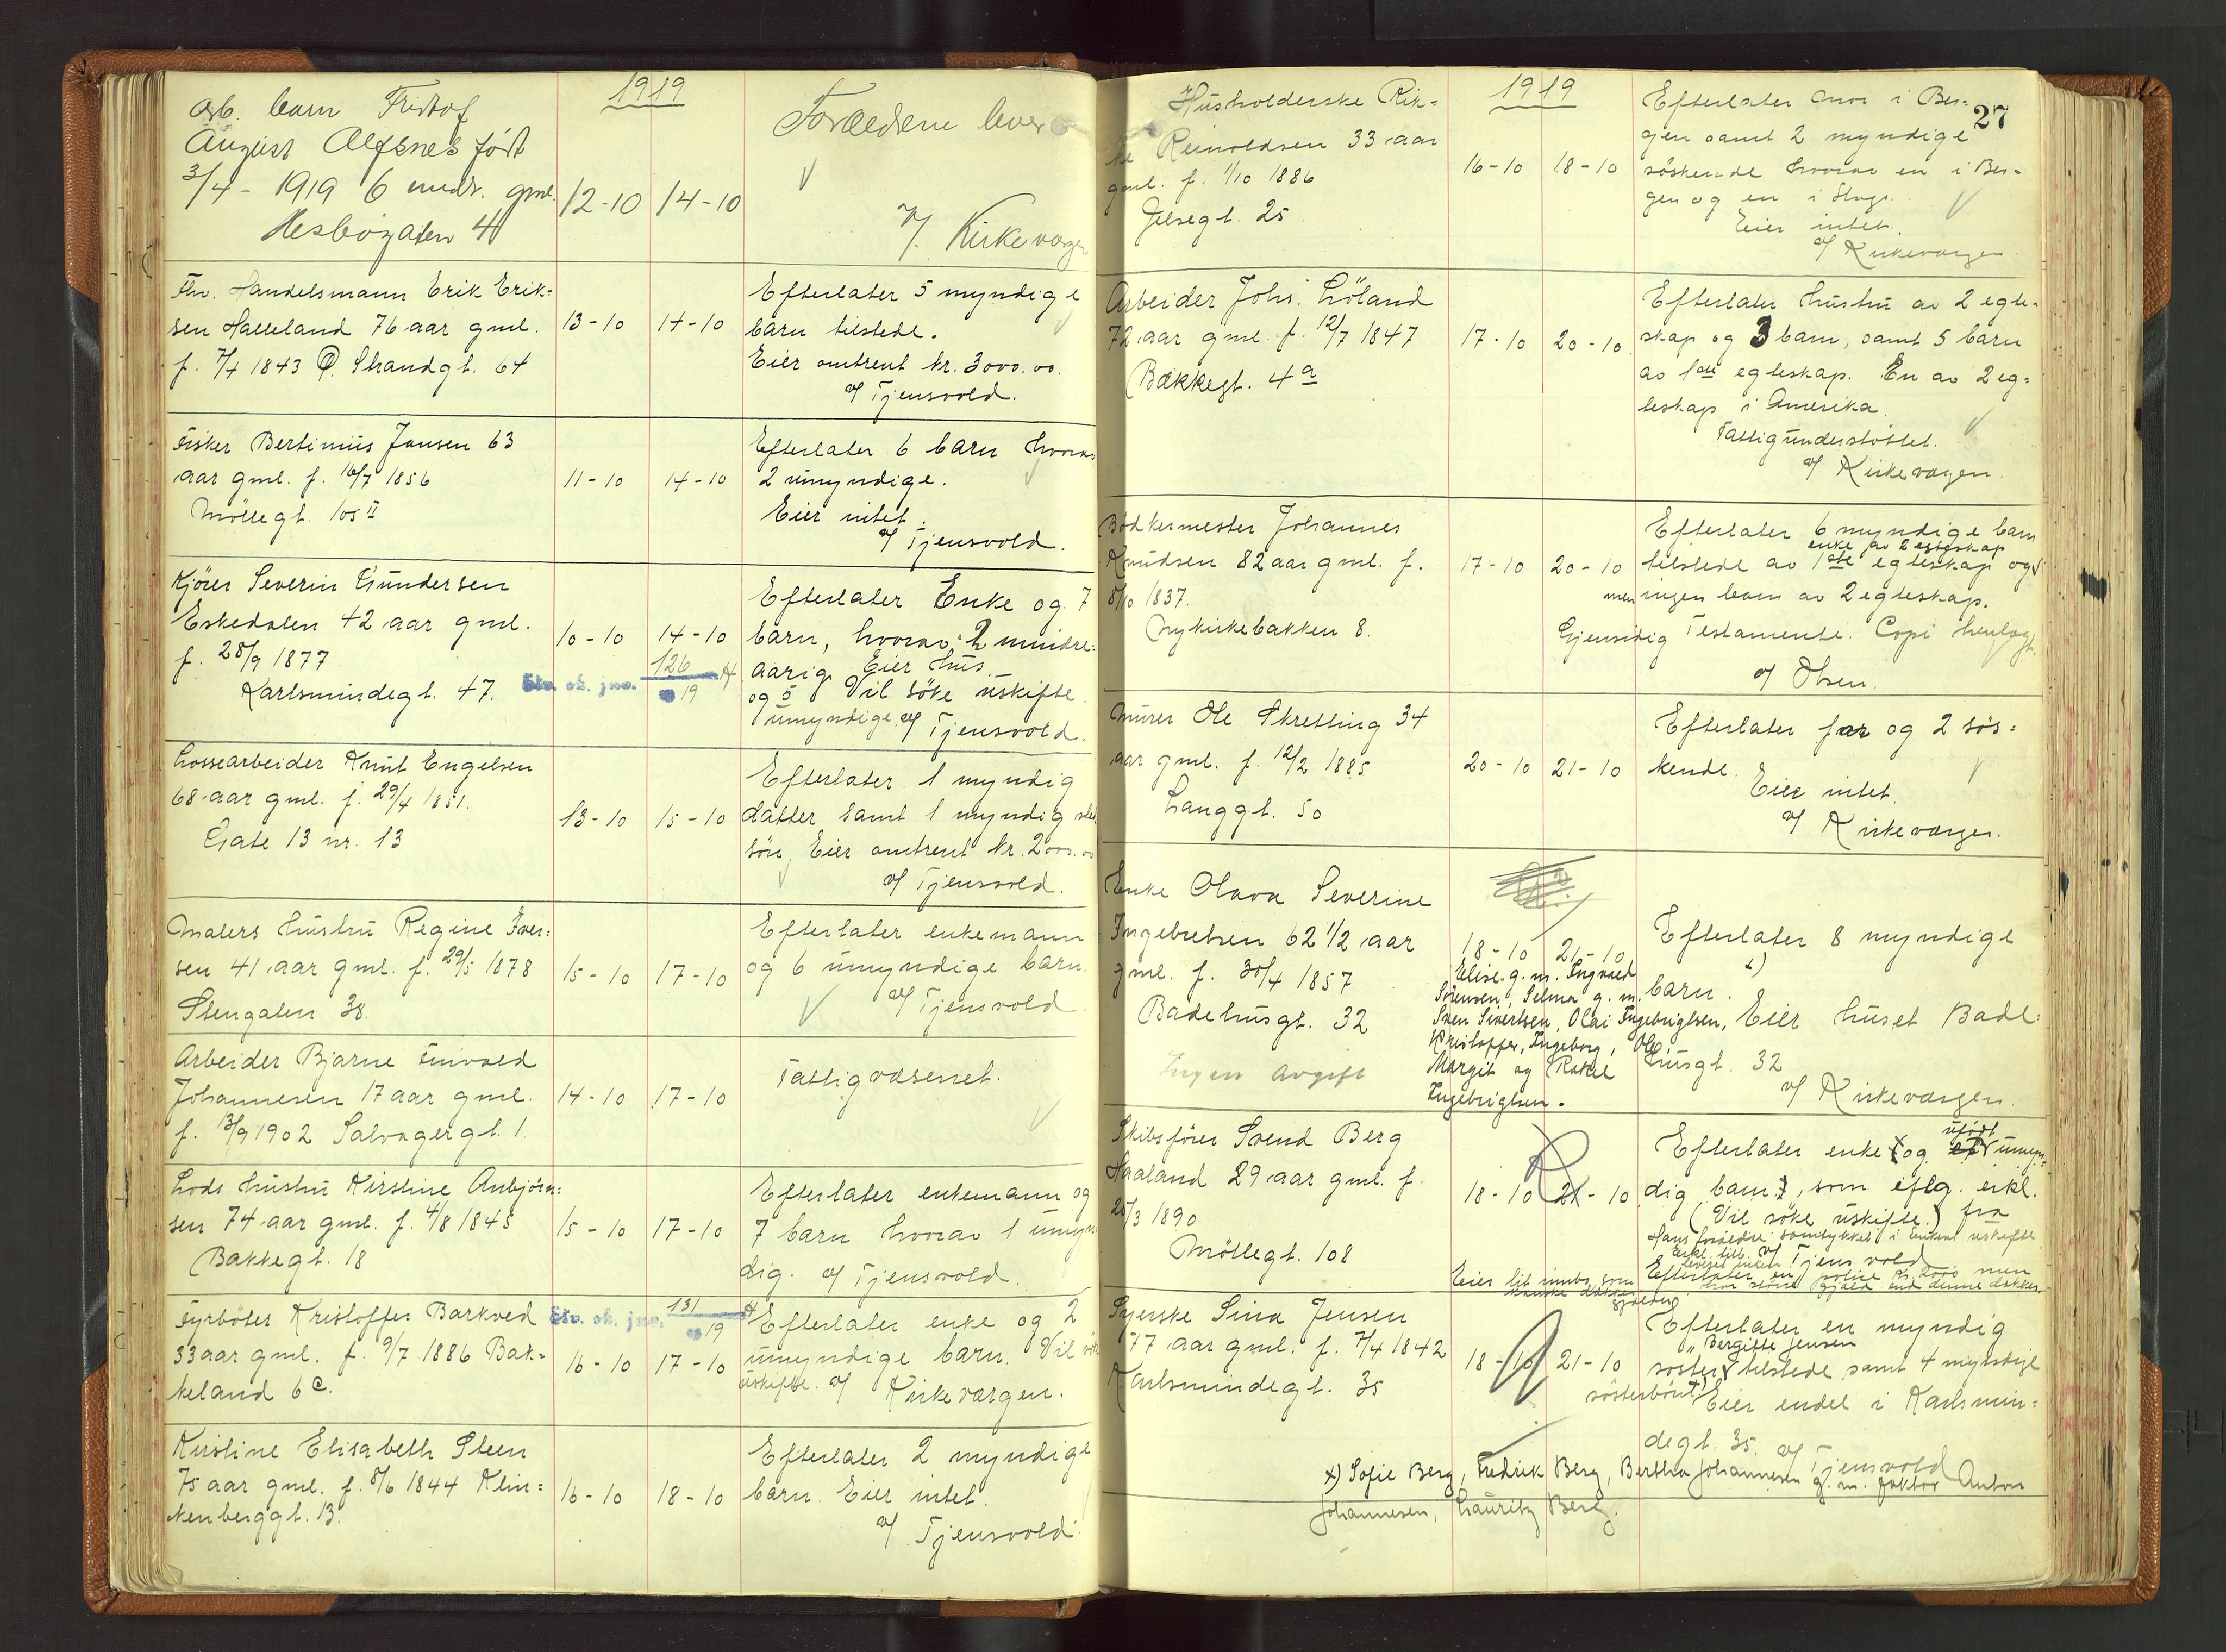 1919
arb. barn Fridtof
August Alfsnes født
3/4 - 1919 6 mndr. gml.
Hesbøgaten 4
12-10 14-10
Forældrene lever
v/ Kirkeværge
Fhv. Handelsmann Erik Erik=
sen Halleland 76 aar gml.
f. 7/4 1843 Ø. Strandgt. 64
13-10 14-10
Efterlater 5 myndige
barn tilstede.
Eier omtrent kr. 3000.00.
v/ Tjensvold.
Fisker Bertinius Jansen 63
aar gml. f. 16/7 1856
Møllegt. 105 II
11-10 14-10
Efterlater 6 barn hvorav
2 umyndige.
Eier intet.
v/ Tjensvold.
Kjører Severin Gundersen
Eskedalen 42 aar gml.
f. 28/9 1877
Karlsmindegt. 47.
10-10 14-10
Skv. ok. jno. 126
19
Efterlater Enke og 7
barn, hvorav 2 mindre=
aarig Eier hus
og 5 Vil søke uskifte
umyndige v/ Tjensvold.
Lossearbeider Knut Engelsen
68 aar gml. f. 29/4 1851.
Gate 13 nr. 13
13-10 15-10
Efterlater 1 myndig
datter samt 1 myndig sted
søn. Eier omtrent kr. 2000.00
v/ Tjensvold.
Malers hustru Regine Iver=
sen 41 aar gml. f. 29/5 1878
Stengaten 38.
15-10 17-10
Efterlater enkemann
og 6 umyndige barn.
v/ Tjensvold
Arbeider Bjarne Einvald
Johannesen 17 aar gml.
f. 13/9 1902 Salvagergt. 1.
14-10 17-10
Fattigvæsenet.
Lods hustru Kirstine Anbjørn=
sen 74 aar gml. f. 4/8 1845
Bakkegt. 18
15-10 17-10
Efterlater enkemann og
7 barn hvorav 1 umyn
dig. v/ Tjensvold.
Fyrbøter Kristoffer Barkved
33 aar gml. f. 9/7 1886 Bak=
keland 6 c.
Skv. ok. jno. 131
19
16-10 17-10
Efterlater enke og 2
umyndige barn. Vil søke
uskifte. v/ Kirkeværgen.
Kirstine Elisabeth Steen
75 aar gml. f. 8/6 1844 Klin=
kenberggt. 13.
16-10 18-10
Efterlater 2 myndige
barn. Eier intet.
v/ Tjensvold.
27
1919
Husholderske Rik=
ke Reinoldsen 33 aar
gml. f. 1/10 1886
Jelsegt. 25
16-10 18-10
Efterlater mor i Ber=
gen samt 2 myndige
søskende hvorav en i Ber=
gen og en i Haug.
Eier intet.
v/ Kirkeværgen.
Arbeider Johs. Løland
72 aar gml. f. 12/7 1847
Bakkegt. 4 a
17-10 20-10
Efterlater hustru av 2 egte=
skap og 3 barn, samt 5 barn
av 1ste egteskap. En av 2 eg=
teskap i Amerika.
Fattigunderstøttet.
v/ Kirkeværgen.
Bødkermester Johannes
Knudsen 82 aar gml. f.
8/10 1837.
Nykirkebakken 8.
17-10 20-10
Efterlater 6 myndige barn
enke av 2 egteskap
tilstede av 1ste egteskap og
men ingen barn av 2 egteskap.
Gjensidig Testamente. Copi henlagt.
v/ Olsen.
Murer Ole Skretting 34
aar gml. f. 12/2 1885
Langgt. 50
20-10 21-10
Efterlater far og 2 søs=
kende.
Eier intet.
v/ Kirkeværgen.
Enke Olava Severine
Ingebretsen 62 1/2 aar
gml. f. 30/4 1857
Badehusgt. 32
Ingen avgift
18-10 21-10
Elise g. m. Ingvald
Sørensen, Selma g. m.
Sven Sivertsen, Olai Ingebrigtsen,
Kristoffer, Ingeborg, Ole,
Margit og Rakel
Ingebrigtsen.
Efterlater 8 myndige
barn. x)
Eier huset Bade=
husgt. 32
v/ Kirkeværgen.
Skibsfører Svend Berg
Haaland 29 aar gml. f.
25/3 1890
Møllegt. 108
18-10 21-10
Efterlater enke og ufødt umyn=
dig barn, som iflg. erkl. fra
(Vil søke uskifte.)
Hans forældre samtykket i enkens uskifte
v/ Tjensvold
Efterlater en police kr. 2000 men
har større gjæld end denne dækker.
Eier lit innbo som
kanske dækker
gjælden
Syerske Sina Jensen
77 aar gml. f. 7/4 1842
Karlsmindegt. 35
18-10 21-10
Efterlater en myndig
Bergitte Jensen
søster tilstede samt 4 myndige
søsterbørn x) Eier endel i Karlsmin=
degt. 35. v/ Tjensvold
x) Sofie Berg, Fredrik Berg, Bertha Johannesen g. m. faktor Anton
Johannesen, Lauritz Berg.